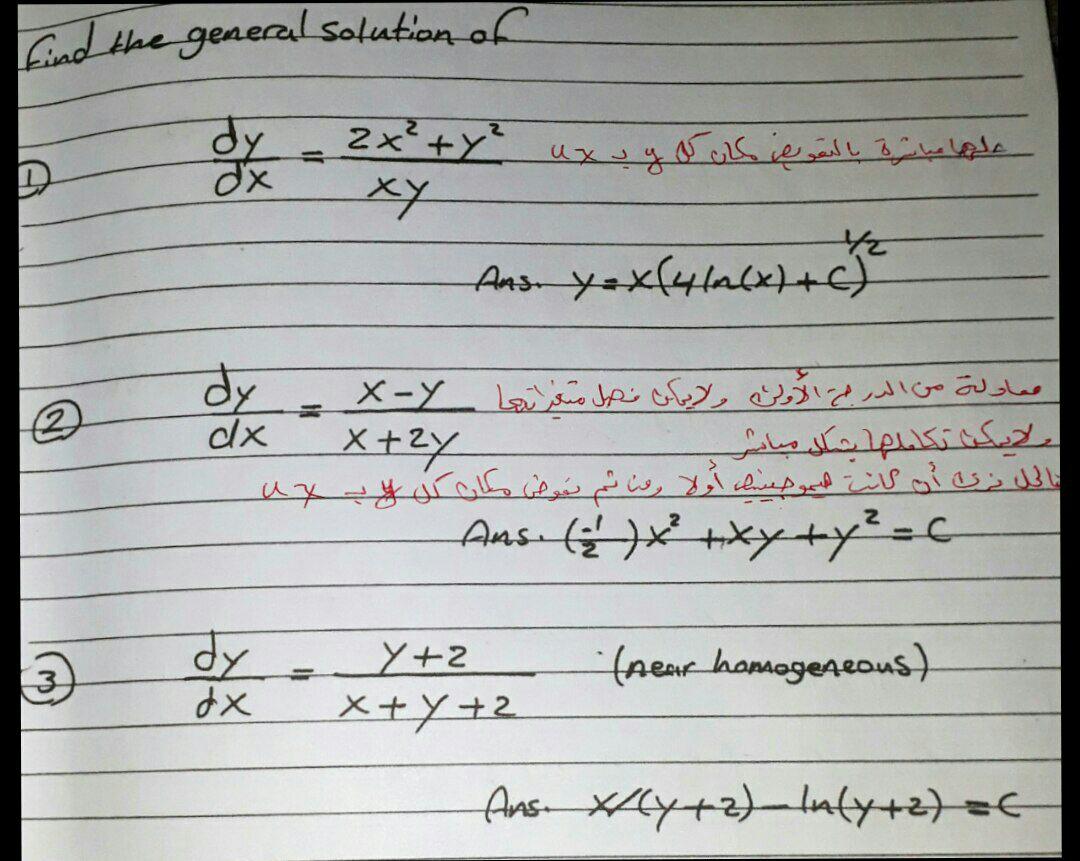 find the general solution of
① dy/dx = (2x² + y²)/(xy) حلها مباشرة بالتعويض مكان كل y بـ ux
Ans. y = x(4 ln(x) + C)^1/2
② dy/dx = (x - y)/(x + 2y) معادلة من الدرجة الأولى ولا يمكن فصل متغيراتها
ولا يمكن تكاملها بشكل مباشر
أن كانت أولا ومن ثم نعوض مكان كل y بـ ux
Ans. (-1/2)x² + xy + y² = C
③ dy/dx = (y + 2)/(x + y + 2) (near homogeneous)
Ans. x/(y + 2) - ln(y + 2) = C